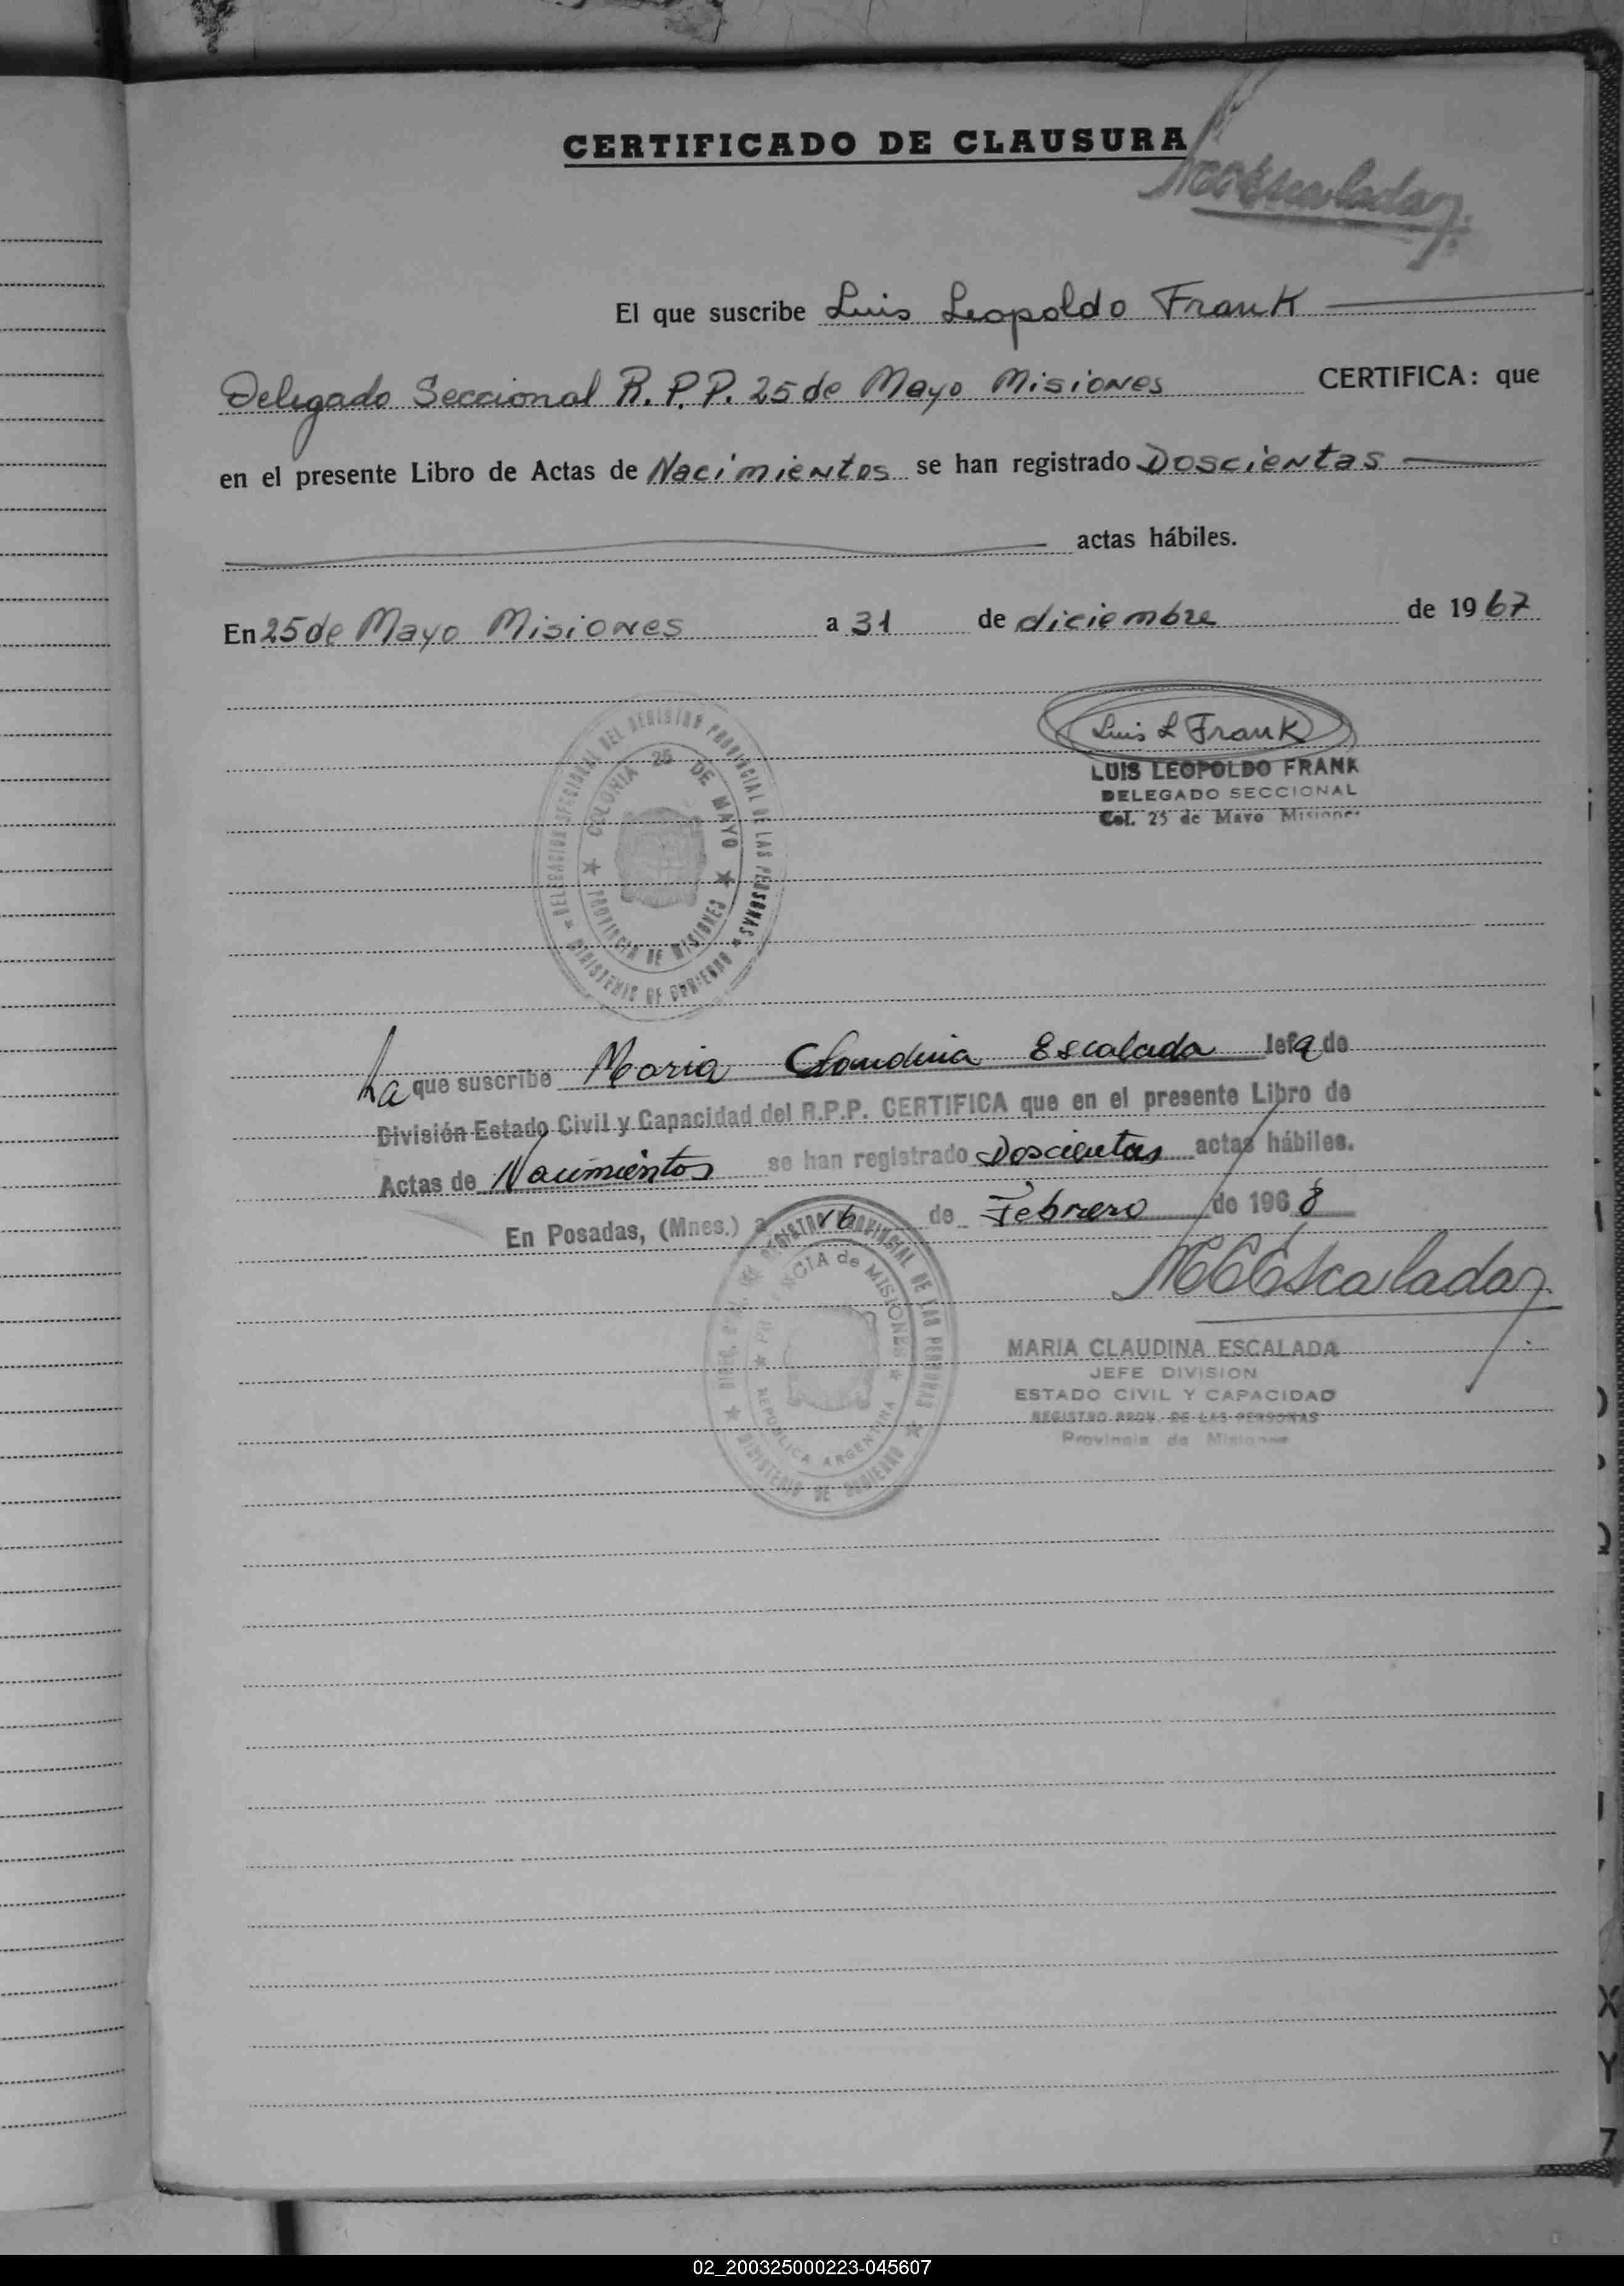 CERTIFICADO DE CLAUSURA
MCEscalada
El que suscribe Luis Leopoldo Frank
Delegado Seccional R.P.P. 25 de Mayo Misiones CERTIFICA: que
en el presente Libro de Actas de Nacimientos se han registrado Doscientas
actas hábiles.
En 25 de Mayo Misiones a 31 de diciembre de 1967
Luis L Frank
LUIS LEOPOLDO FRANK
DELEGADO SECCIONAL
Col. 25 de Mayo Misiones
DELEGACION SECCIONAL DEL REGISTRO PROVINCIAL DE LAS PERSONAS
MINISTERIO DE GOBIERNO
COLONIA 25 DE MAYO
PROVINCIA DE MISIONES
La que suscribe Maria Claudina Escalada Jefa de
División Estado Civil y Capacidad del R.P.P. CERTIFICA que en el presente Libro de
Actas de Nacimientos se han registrado Doscientas actas hábiles.
En Posadas, (Mnes.) a 16 de Febrero de 1968
MCEscalada
MARIA CLAUDINA ESCALADA
JEFE DIVISION
ESTADO CIVIL Y CAPACIDAD
REGISTRO PROV. DE LAS PERSONAS
Provincia de Misiones
REGISTRO PROVINCIAL DE LAS PERSONAS
MINISTERIO DE GOBIERNO
PROVINCIA de MISIONES
REPUBLICA ARGENTINA
X
Y
Z
02_200325000223-045607